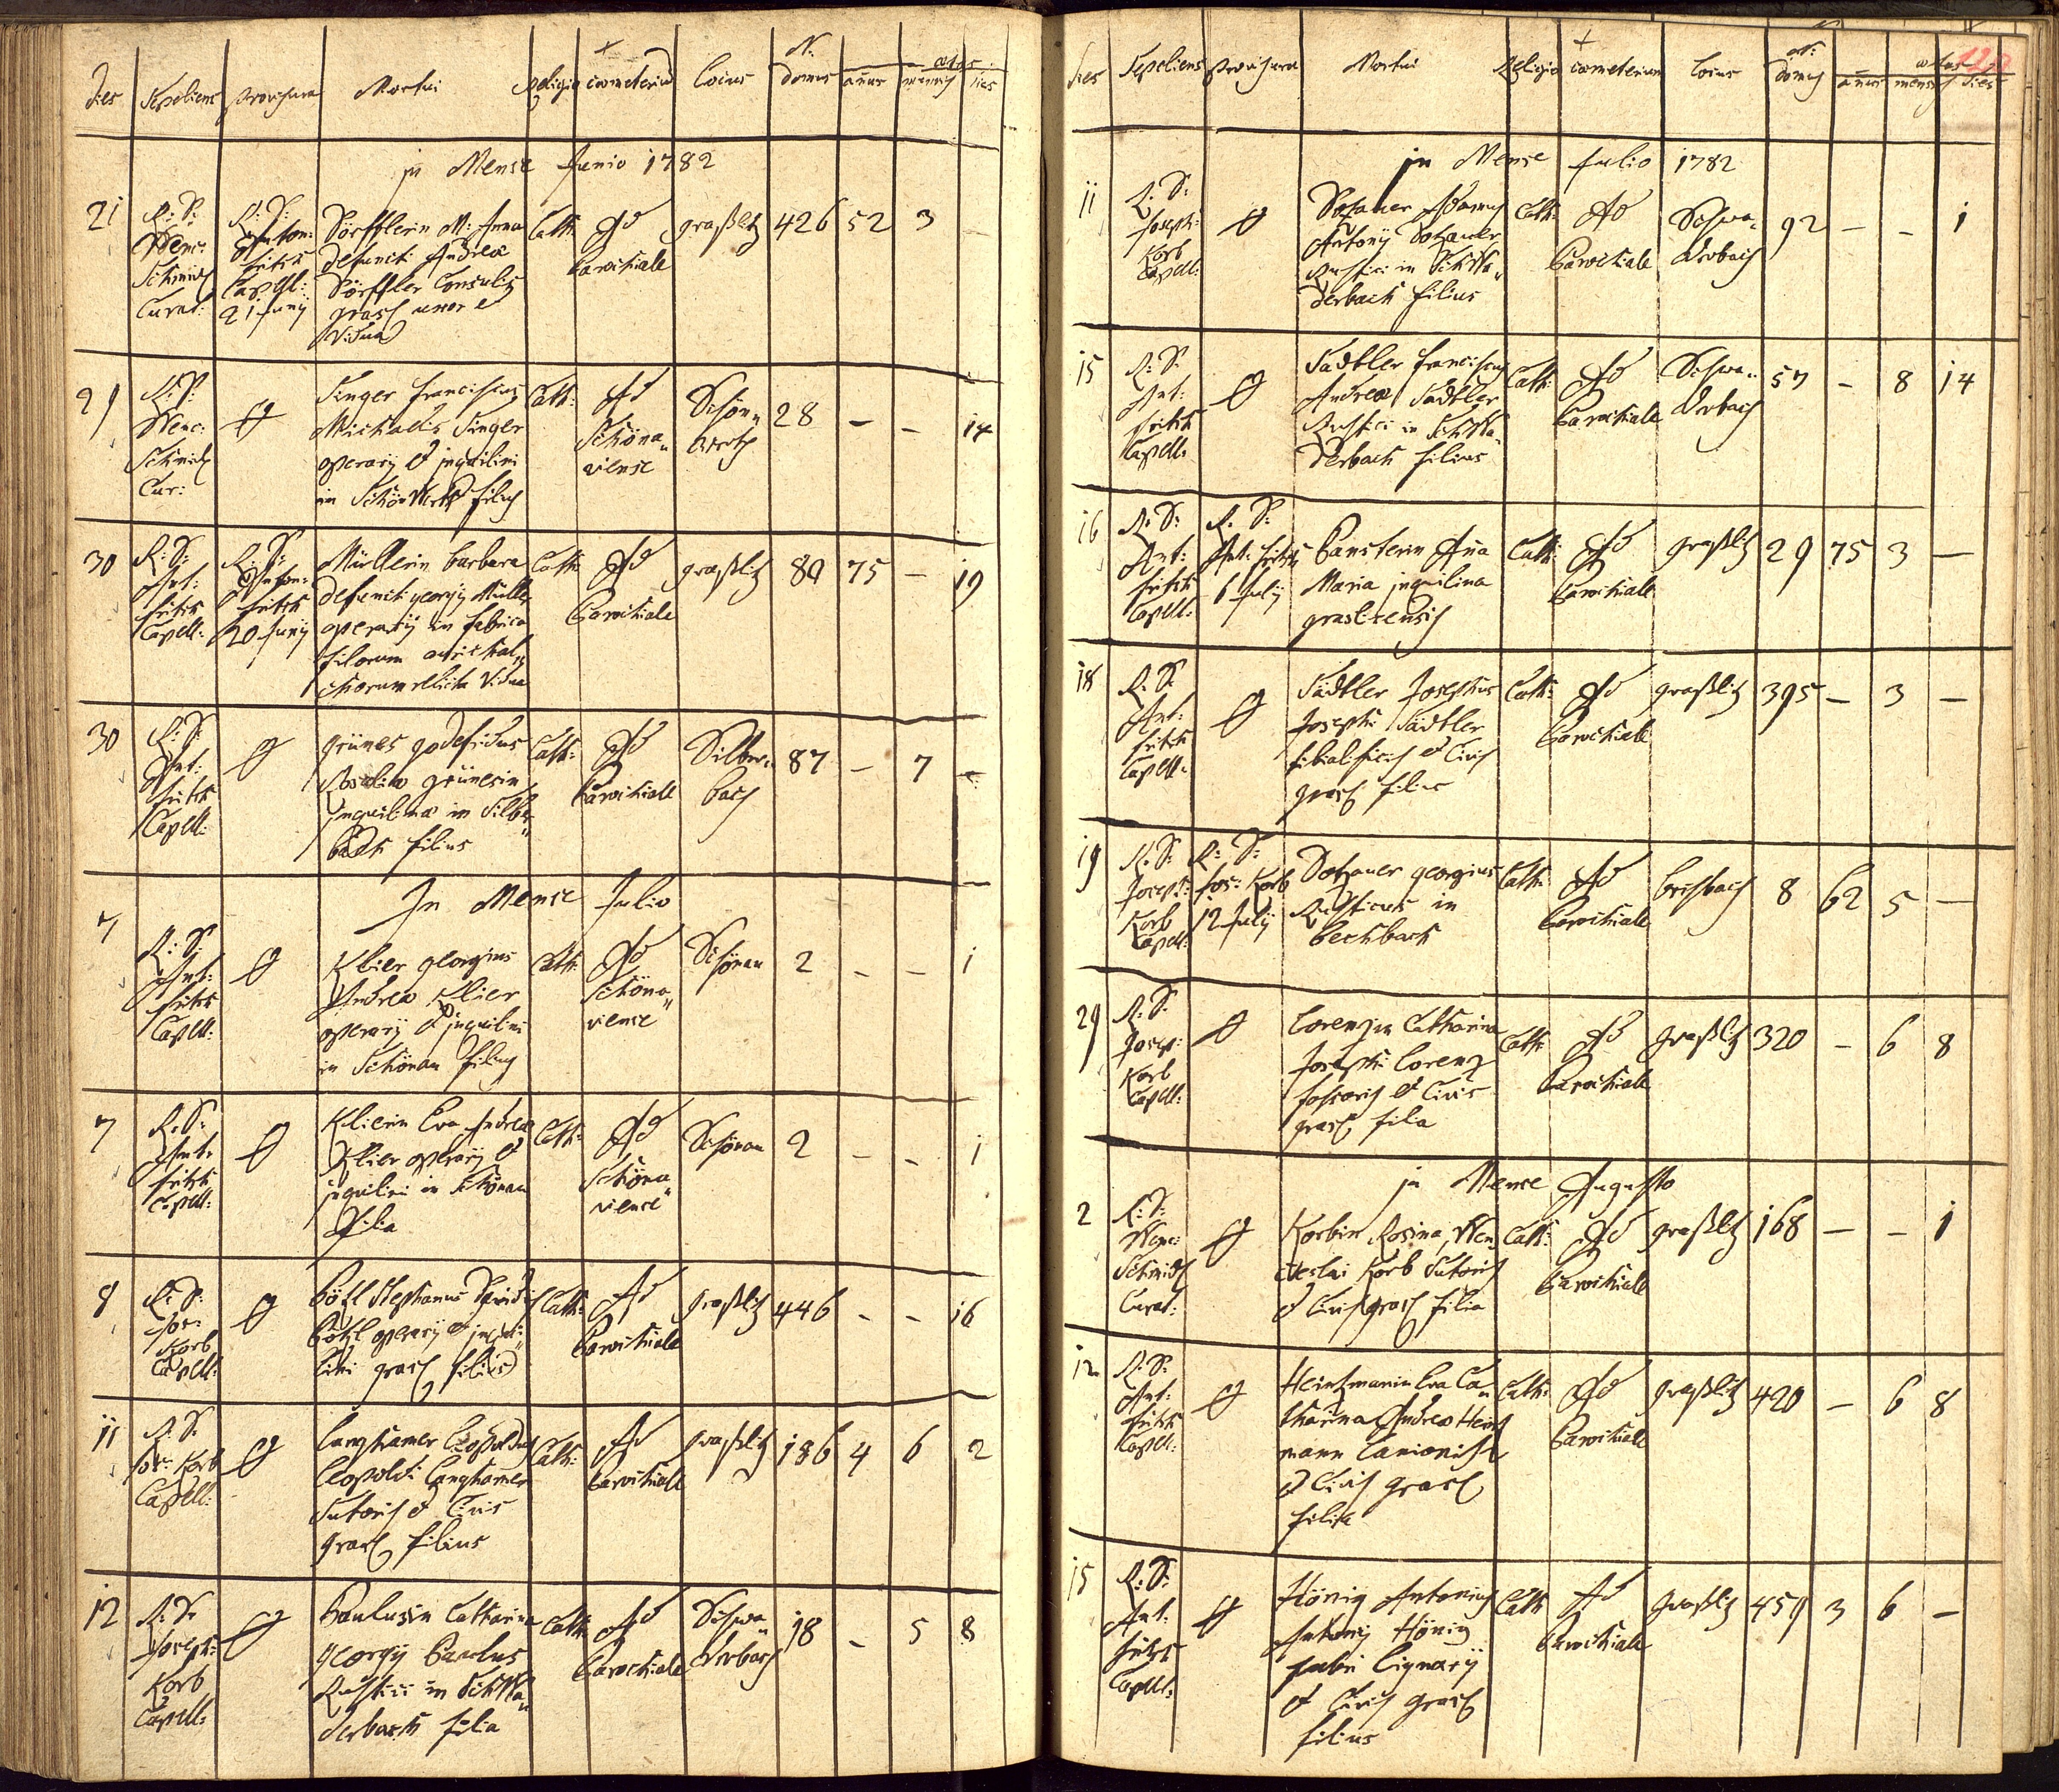 Dies Sepeliens Provisura Mortui Religio Coemeterium Locus N: domus aetas annus mensis dies
in Mense Junio 1782
21 R: D: Wenc: Schmidt Curat:
R: D: Anton: Fritsch Capell: 21 Junij
Dörfflerin M: Anna
defuncti Andreæ
Dörffler Consulis
grasl uxor et
Vidua
Cath: Ad Parochiale graßlitz 426 52 3
29 R: D: Wenc: Schmidt Cur:
Singer Franciscus
Michaelis Singer
operarij et inquilini
in Schönwerth filius
Cath: Ad Schönaviense Schönwerth 28 – – 14
30 R: D: Ant: Fritsch Capell:
R: D: Anton: Fritsch 20 Junij
Müllerin Barbara
defuncti georgij Müller
operarij in fabrica
filorum aurichal„
chorum relicta Vidua
Cath: Ad Parochiale graßlitz 80 75 – 19
30 R: D: Ant: Fritsch Capell:
grünes godefridus
Rosaliæ grünesin
inquilinæ in Silber„
bach filius
Cath: Ad Parochiale Silberbach 87 – 7 –
In Mense Julio
7 R: D: Ant: Fritsch Capell:
Klier georgius
Andreæ Klier
operarij et inquilini
in Schönau filius
Cath: Ad Schönaviense Schönau 2 – – 1
7 R: D: Ant: Fritsch Capell:
Klierin Eva Andreæ
Klier operarij et
inquilini in Schönau
filia
Cath: Ad Schönaviense Schönau 2 – – 1
8 R: D: Jos: Korb Capell:
Bötzl Stephanus Davidis
Bötzl operarij et inqui„
lini grasl filius
Cath: Ad Parochiale graßlitz 446 – – 16
11 R: D: Jos: Korb Capell:
Langhamer Leopoldus
Leopoldi Langhamer
Sutoris et Civis
grasl filius
Cath: Ad Parochiale graßlitz 186 4 6 2
12 R: D: Joseph: Korb Capell:
Paulusin Catharina
georgij Paulus
Rustici in Schwa„
derbach filia
Cath: Ad Parochiale Schwaderbach 18 – 5 8
Dies Sepeliens Provisura Mortui Religio Coemeterium Locus N: domus aetas annus mensis dies
in Mense Julio 1782
11 R: D: Joseph: Korb Capell:
Dotzauer Adamus
Antonij Dotzauer
Rustici in Schwa„
derbach filius
Cath: Ad Parochiale Schwaderbach 92 – – 1
15 R: D: Ant: Fritsch Capell:
Sädtler Franciscus
Andreæ Sädtler
Rustici in Schwa„
derbach filius
Cath: Ad Parochiale Schwaderbach 57 – 8 14
16 R: D: Ant: Fritsch Capell:
R: D: Ant: Fritsch 6 Julij
Pansterin Aña
Maria inquilina
graslicensis
Cath: Ad Parochiale graßlitz 29 75 3 –
18 R: D: Ant: Fritsch Capell:
Sädtler Josephus
Josephi Sädtler
et Civis
grasl filius
Cath: Ad Parochiale graßlitz 395 – 3 –
19 R: D: Joseph: Korb Capell:
R: D: Jos: Korb 12 Julij
Dotzauer georgius
Rusticus in
Eechbach
Cath: Ad Parochiale 8 62 5 –
29 R: D: Joseph: Korb Capell:
Lorenzin Catharina
Josephi Lorenz
et Civis
grasl filia
Cath: Ad Parochiale graßlitz 320 – 6 8
in Mense Augusto
2 R: D: Wenc: Schmidt Curat:
Korbin Rosina, Wen„
ceslai Korb Sutoris
et Civis grasl filia
Cath: Ad Parochiale graßlitz 168 – – 1
12 R: D: Ant: Fritsch Capell:
Heintzmanin Eva Ca„
tharina Andreæ Heintz
mann Lanionis
et Civis grasl
filia
Cath: Ad Parochiale graßlitz 420 – 6 8
15 R: D: Ant: Fritsch Capell:
Hönig Antonius
Antonij Hönig
fabri Lignarij
et Civis grasl
filius
Cath: Ad Parochiale graßlitz 459 3 6 –